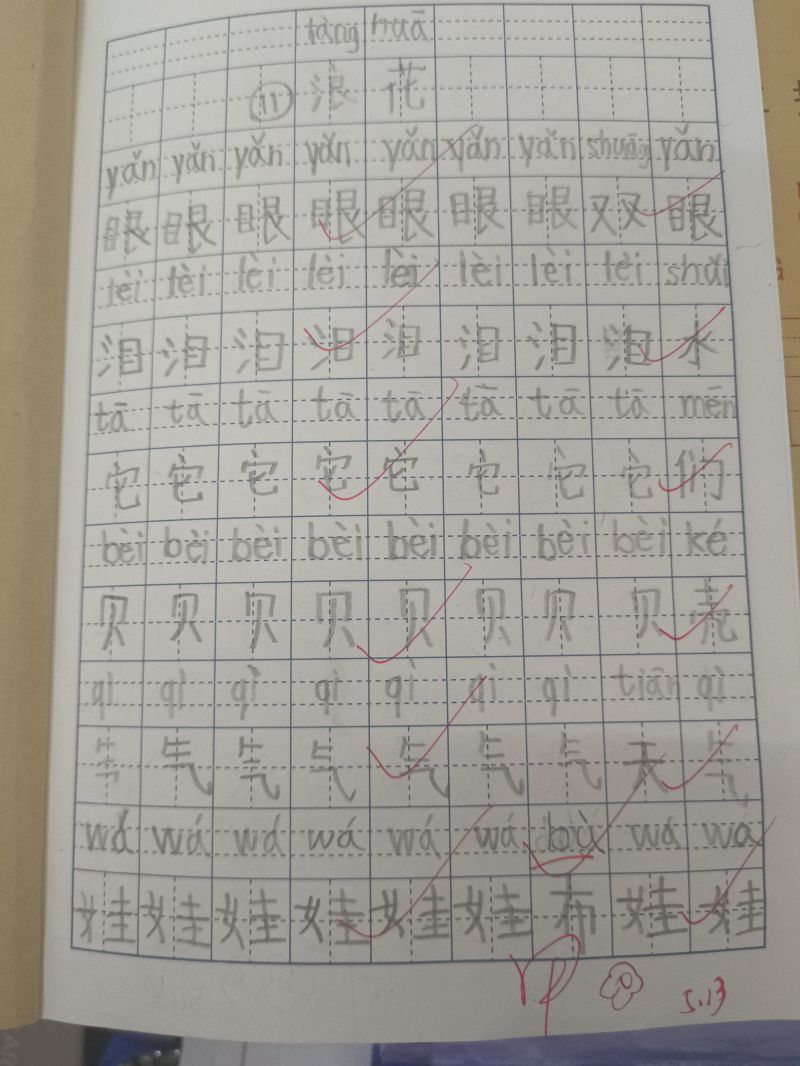 làng huā
⑪ 浪 花
yǎn yǎn yǎn yǎn yǎn yǎn yǎn shuāng yǎn
眼 眼 眼 眼 眼 眼 眼 双 眼
lèi lèi lèi lèi lèi lèi lèi lèi shuǐ
泪 泪 泪 泪 泪 泪 泪 泪 水
tā tā tā tā tā tā tā tā mēn
它 它 它 它 它 它 它 它 们
bèi bèi bèi bèi bèi bèi bèi bèi ké
贝 贝 贝 贝 贝 贝 贝 贝 壳
qì qì qì qì qì qì qì tiān qì
气 气 气 气 气 气 气 天 气
wá wá wá wá wá wá bù wá wa
娃 娃 娃 娃 娃 娃 布 娃 娃
5.13